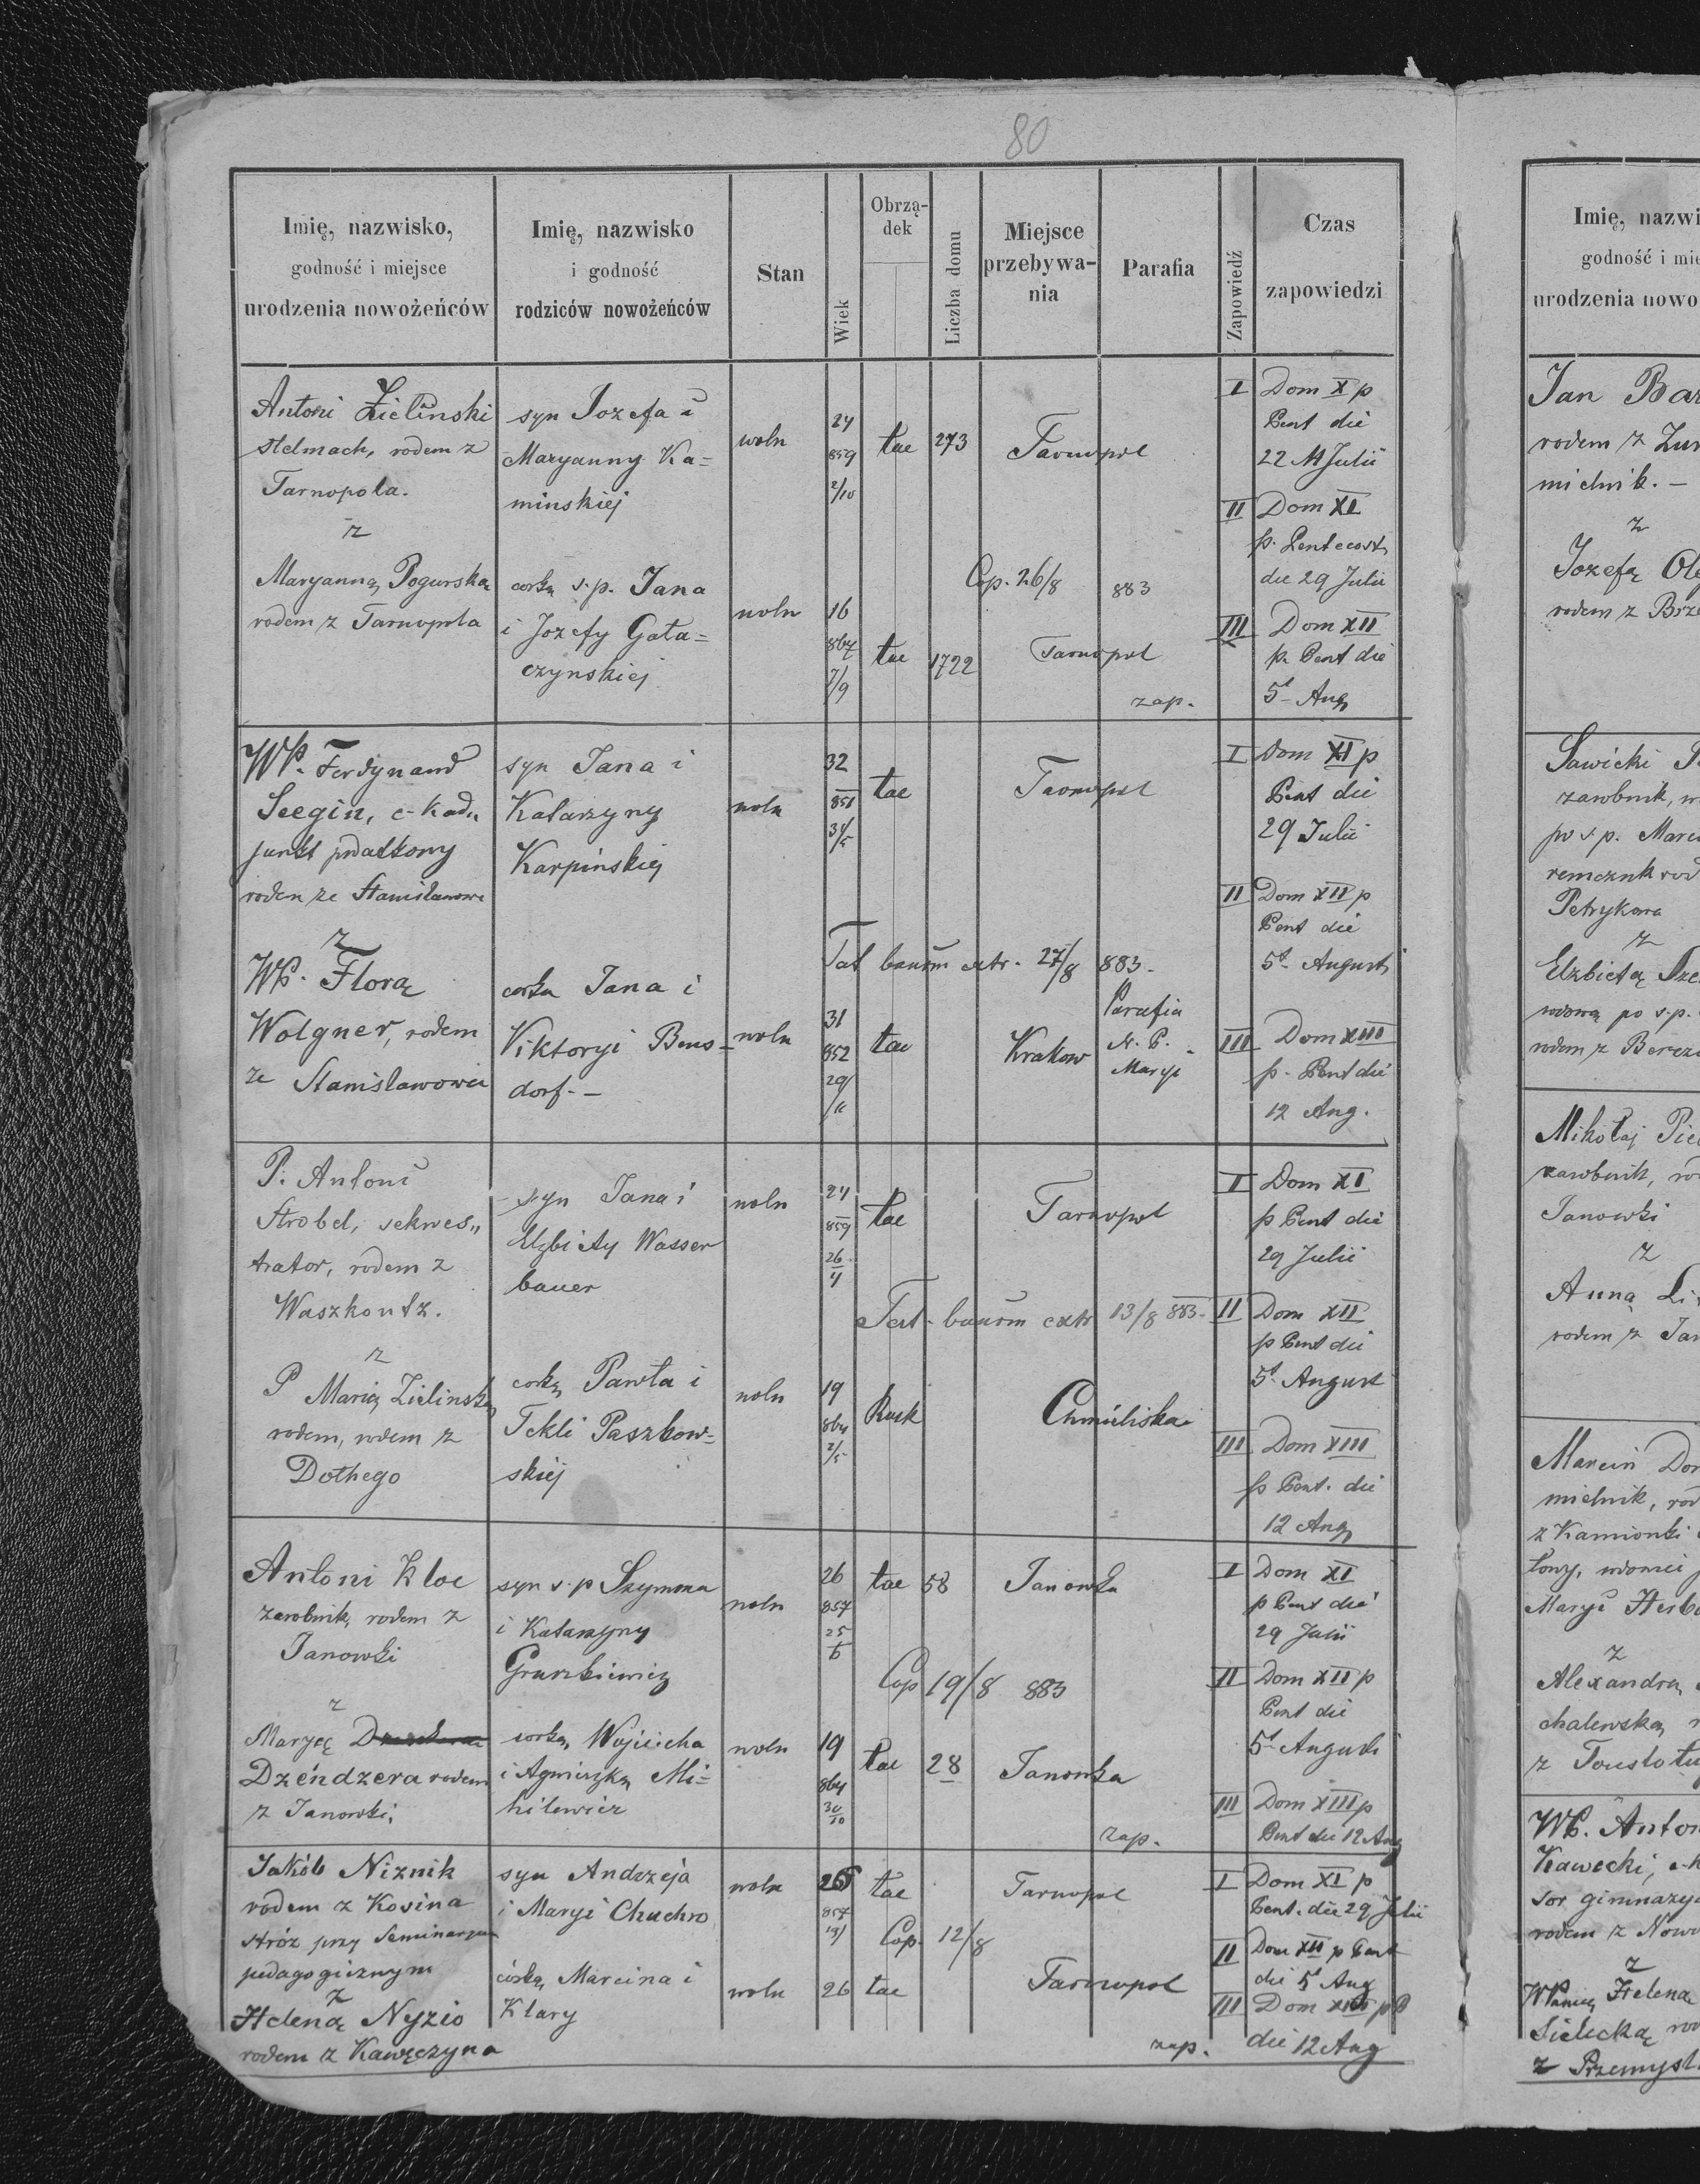 80
Imię, nazwisko,
godność i miejsce
urodzenia nowożeńców
Imię, nazwisko
i godność
rodziców nowożeńców
Stan
Wiek
Obrzą-
dek
Liczba domu
Miejsce
przebywa-
nia
Parafia
Zapowiedź
Czas
zapowiedzi
Antoni Zielinski
stelmach, rodem z
Tarnopola.
z
Maryanną Pogurska
rodem z Tarnopola
syn Jozefa i
Maryanny Ka=
minskiej
corka s.p. Jana
i Jozefy Gała=
czynskiej
woln
24
859
2/10
lac 273 Tarnopol
Cop. 26/8 883
woln
16
867
7/9
lac 1722 Tarnopol
zap.
I Dom X p
Pent die
22 Julii
II Dom XI
p. Pentecost
die 29 Julii
III Dom XII
p. Pent die
5t Aug
WP. Ferdynand
Seegin, c-k ad„
junkt podatkowy
rodem ze Stanisławowa
z
WP. Florą
Wolgner, rodem
ze Stanisławowa
syn Jana i
Katarzyny
Karpinskiej
corka Jana i
Viktoryi Bens=
dorf. -
woln
32
851
31/5
lac Tarnopol
Test bannm extr. 27/8 883.
woln
31
852
29/11
lac Krakow
Parafia
N. P.
Maryi
I Dom XI p
Pent die
29 Julii
II Dom XII p
Pent die
5t August
III Dom XIII
p. Pent die
12 Aug.
P. Antoni
Strobel, sekwes„
trator, rodem z
Waszkoutz.
z
P Marią Zielinską
rodem, rodem z
Dołhego
syn Jana i
Elzbiety Wasser
bauer
corką Pawła i
Tekli Paszkow=
skiej
woln
24
859
26/4
lac Tarnopol
Test. bannm extr 13/8 883.
woln
19
864
2/5
Rusk Chmieliska
I Dom XI
p Pent die
29 Julii
II Dom XII
p Pent die
5t August
III Dom XIII
p Pent. die
12 Aug
Antoni Kloc
zarobnik, rodem z
Janowki
z
Maryą
Dzéndzera rodem
z Janowki.
syn s.p Szymona
i Katarzyny
Gruszkiewicz
corką Wojciecha
i Agnieszką Mi=
hilewicz
woln
26
857
25/6
lac 58 Janowka
Cop 19/8 883
woln
19
864
30/10
lac 28 Janowka
zap.
I Dom XI
p Pent die
29 Julii
II Dom XII p
Pent die
5t Augusti
III Dom XIII p
Pent die 12 Aug
Jakób Niznik
rodem z Kosina
stróz przy Seminaryum
pedagogicznym
z
Heleną Nyzio
rodem z Kawęczyna
syn Andrzeja
i Maryi Chuchro
córką Marcina i
Klary
woln 26
857
lac Tarnopol
Cop. 12/8
woln 26 lac Tarnopol
zap.
I Dom XI p
Pent. die 29 Julii
II Dom XII p Pent
die 5t Aug
III Dom XIII p P
die 12 Aug
Imię, nazwi
godność i mie
urodzenia nowo
Jan Bar
rodem z Zur
mielnik. -
z
Jozefą Ole
rodem z Brze
Sawicki
zarobnik, w
po s.p. Marc
rodem z
Petrykowa
z
Elzbietą Sze
wdową po s.p.
rodem z Berez
Mikołaj Pie
zarobnik, ro
Janowki
z
Anną Li
rodem z Jan
Marcin Dor
mielnik, rod
z Kamionki
Maryi Herb
z
Alexandrą
chalewską
z Toustołu
WP. Anton
Kawecki, c-k
sor gimnazya
rodem z Nowo
z
WPanią Heleną
Sielecką rod
z Przemysl